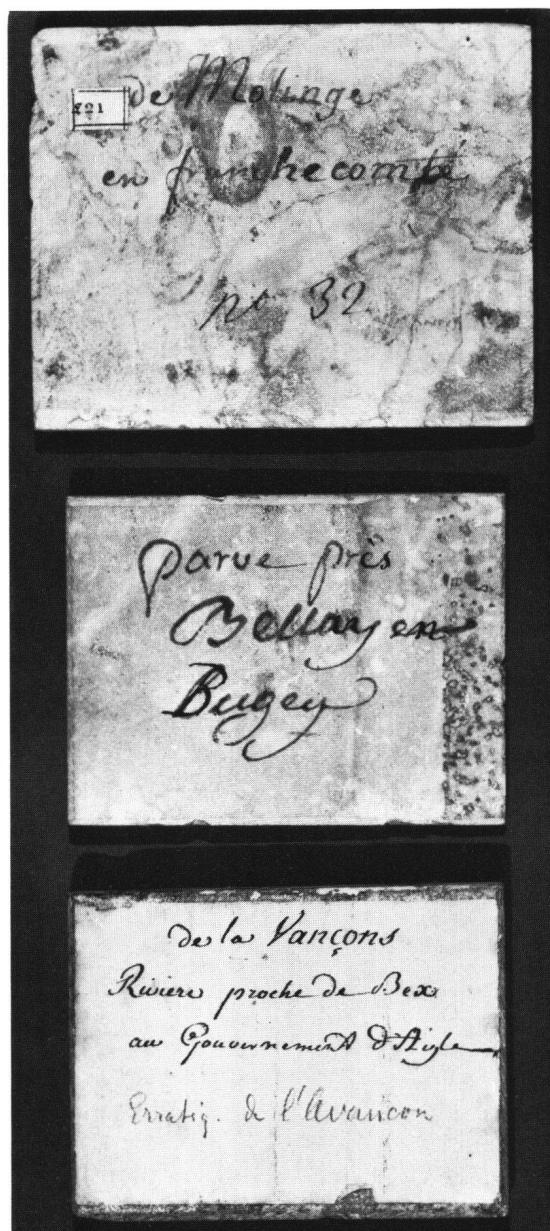 121
de Molinge
en franchecomté
no 32
parve près
Bellay en
Bugey
de la Vançons
Riviere proche de Bex
au Gouvernement d'Aigle
Erratiq. de l'Avançon